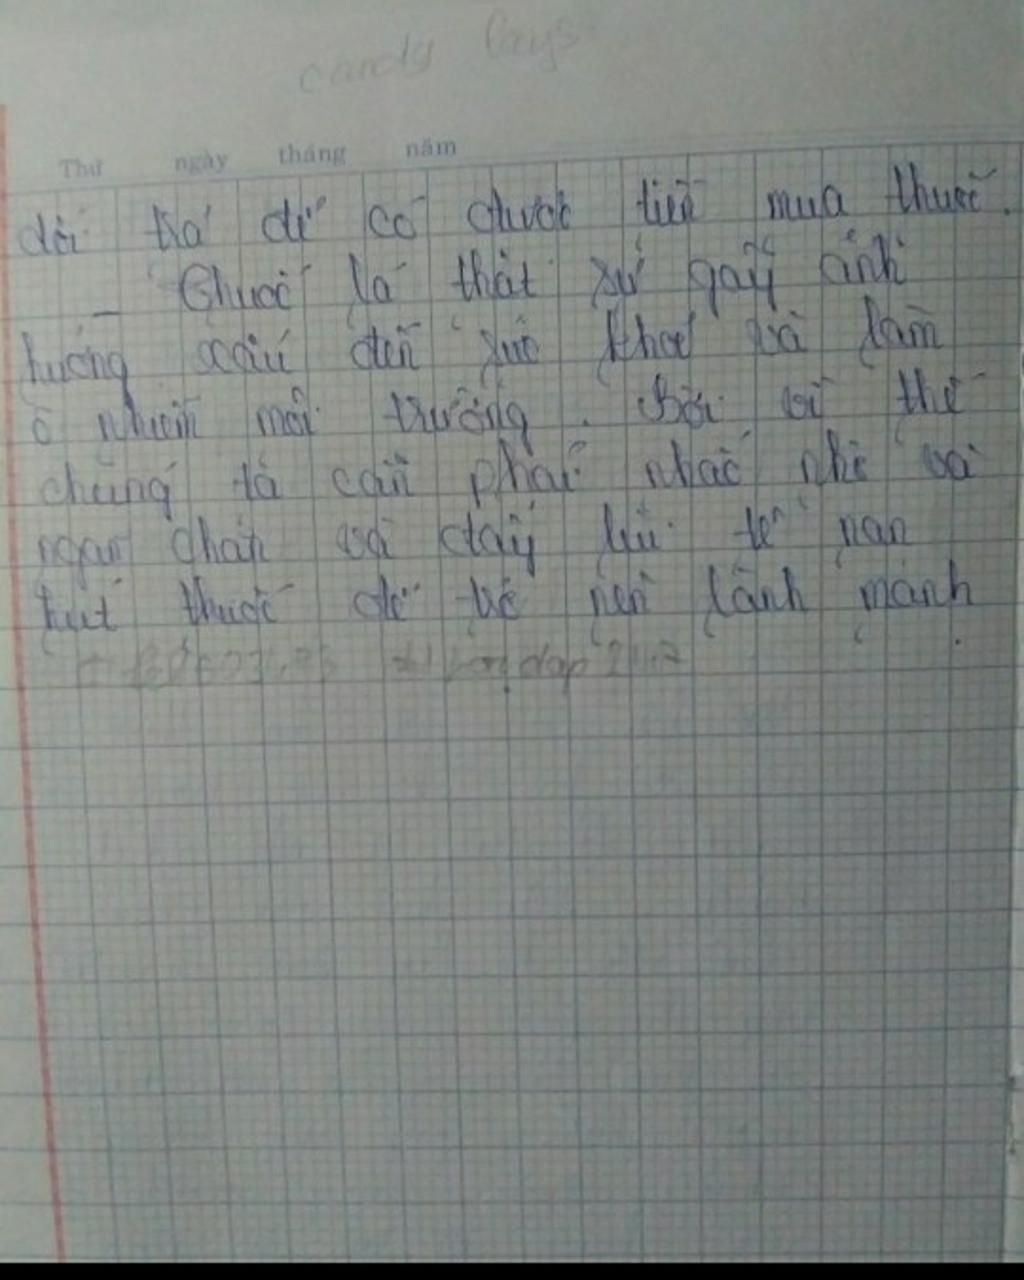 candy lays
Thứ ngày tháng năm
dối trá để có được tiền mua thuốc.
- Thuốc lá thật sự gây ảnh
hưởng xấu đến sức khoẻ và làm
ô nhiễm môi trường. Bởi vì thế
chúng ta cần phải nhắc nhở và
ngăn chặn và đẩy lùi tệ nạn
hút thuốc để trở nên lành mạnh.